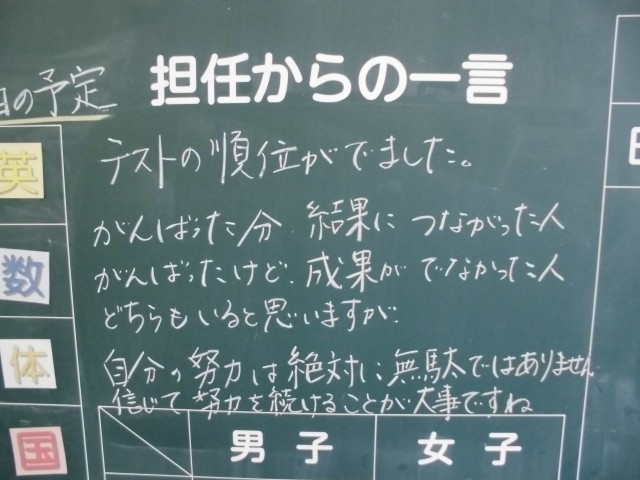 日の予定
担任からの一言
テストの順位がでました。
がんばった分 結果に つながった人
がんばったけど、成果が でなかった人
どちらもいると思いますが、
自分の努力は絶対に無駄ではありません
信じて努力を続けることが大事ですね
英
数
体
国
男子
女子